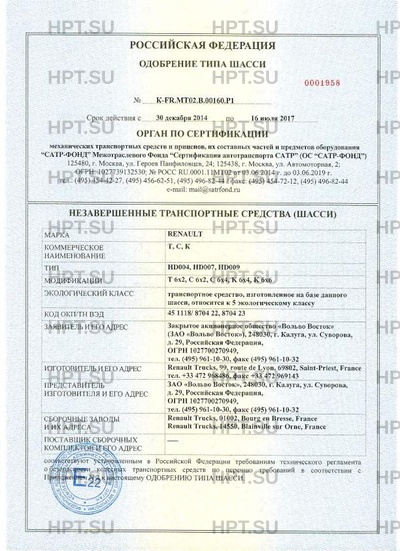 РОССИЙСКАЯ ФЕДЕРАЦИЯ
ОДОБРЕНИЕ ТИПА ШАССИ
0001958
№ K-FR.MT02.B.00160.P1
Срок действия с 30 декабря 2014 по 16 июля 2017
ОРГАН ПО СЕРТИФИКАЦИИ
механических транспортных средств и прицепов, их составных частей и предметов оборудования
"САТР-ФОНД" Межотраслевого Фонда "Сертификация автотранспорта САТР" (ОС "САТР-ФОНД")
125480, г. Москва, ул. Героев Панфиловцев, 24; 125438, г. Москва, ул. Автомоторная, 2;
ОГРН 1027739132530; № РОСС RU.0001.11МТ02 от 03.06.2014 г. до 03.06.2019 г.
тел.: (495) 454-42-27, (495) 456-62-51, (495) 496-82-44 / факс: (495) 454-72-12, (495) 496-82-44
e-mail: mail@satrfond.ru
НЕЗАВЕРШЕННЫЕ ТРАНСПОРТНЫЕ СРЕДСТВА (ШАССИ)
МАРКА RENAULT
КОММЕРЧЕСКОЕ НАИМЕНОВАНИЕ T, C, K
ТИП HD004, HD007, HD009
МОДИФИКАЦИИ T 6x2, C 6x2, C 6x4, K 6x4, K 6x6
ЭКОЛОГИЧЕСКИЙ КЛАСС транспортное средство, изготовленное на базе данного
шасси, относится к 5 экологическому классу
КОД ОКП/ТН ВЭД 45 1118/ 8704 22, 8704 23
ЗАЯВИТЕЛЬ И ЕГО АДРЕС Закрытое акционерное общество «Вольво Восток»
(ЗАО «Вольво Восток»), 248030, г. Калуга, ул. Суворова,
д. 29, Российская Федерация,
ОГРН 1027700270949,
тел. (495) 961-10-30, факс (495) 961-10-32
ИЗГОТОВИТЕЛЬ И ЕГО АДРЕС Renault Trucks, 99, route de Lyon, 69802, Saint-Priest, France
тел. +33 472 968486, факс +33 472 969143
ПРЕДСТАВИТЕЛЬ ИЗГОТОВИТЕЛЯ И ЕГО АДРЕС ЗАО «Вольво Восток», 248030, г. Калуга, ул. Суворова,
д. 29, Российская Федерация,
ОГРН 1027700270949,
тел. (495) 961-10-30, факс (495) 961-10-32
СБОРОЧНЫЕ ЗАВОДЫ И ИХ АДРЕСА Renault Trucks, 01002, Bourg en Bresse, France
Renault Trucks, 14550, Blainville sur Orne, France
ПОСТАВЩИК СБОРОЧНЫХ КОМПЛЕКТОВ И ЕГО АДРЕС —
соответствуют установленным в Российской Федерации требованиям технического регламента
о безопасности колесных транспортных средств по перечню требований в соответствии с
Приложением к настоящему ОДОБРЕНИЮ ТИПА ШАССИ.
E22
HPT.SU